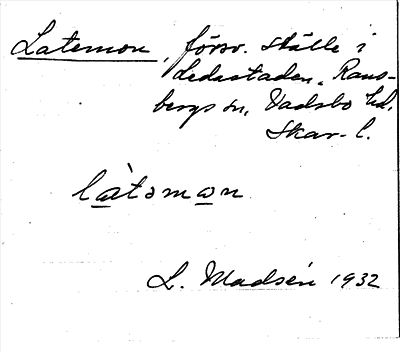 Latemon, försv. ställe i
Ledestaden. Rans-
bergs sn, Vadsbo hd,
Skar. l.
là̱təmo̱n
L. Madsén 1932